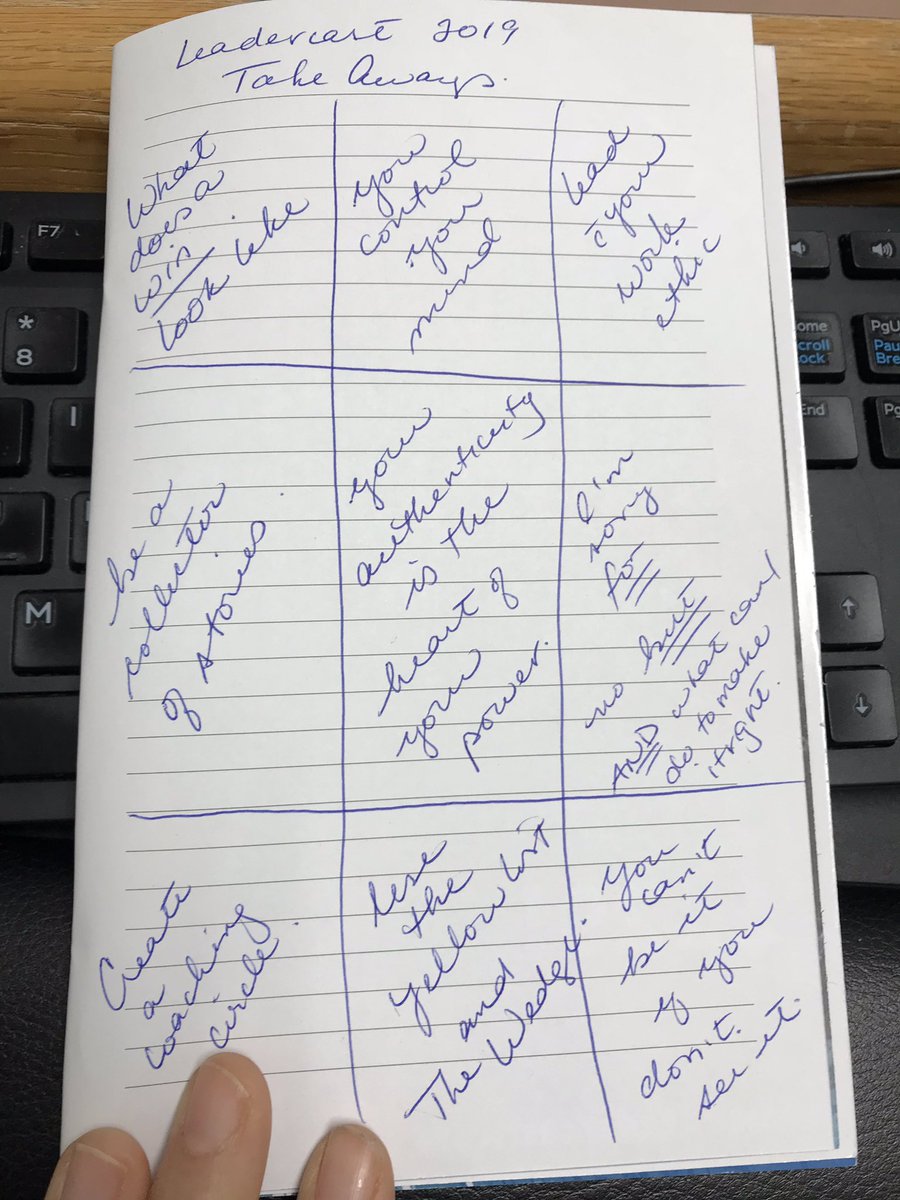 Leadercast 2019
Take Aways.
What
does a
win
look like
you
control
you
mind
lead
c̄ your
work
ethic
be a
collector
of stories.
your
authenticity
is the
heart of
your
power.
I'm
sory
for
no but
AND what can I
do to make
it right.
Create
a
coaching
circle.
Use
the
yellow list
and
The Wedge.
You
can't
be it
if you
don't
see it.
F7
*
8
I
M
ome
croll
ock
PgU
Pau
Bre
End
Pg